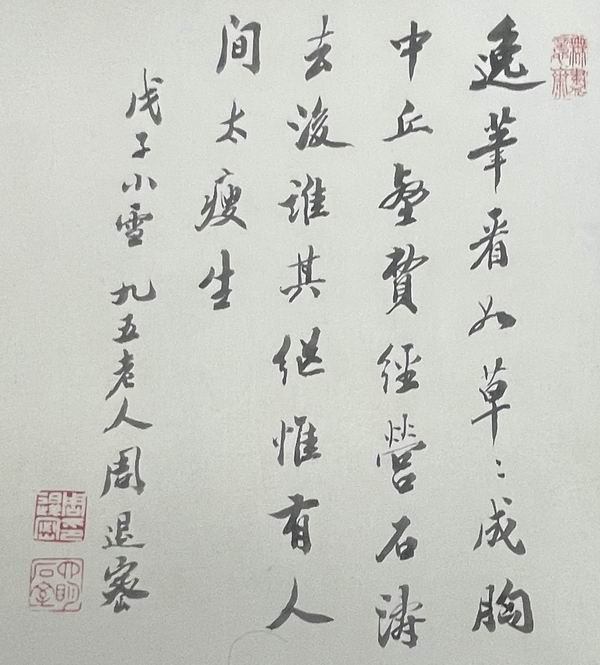 逸筆看如草〻成胸
中丘壑費經營石濤
去後誰其继惟有人
间太瘦生
戊子小雪九五老人周退密